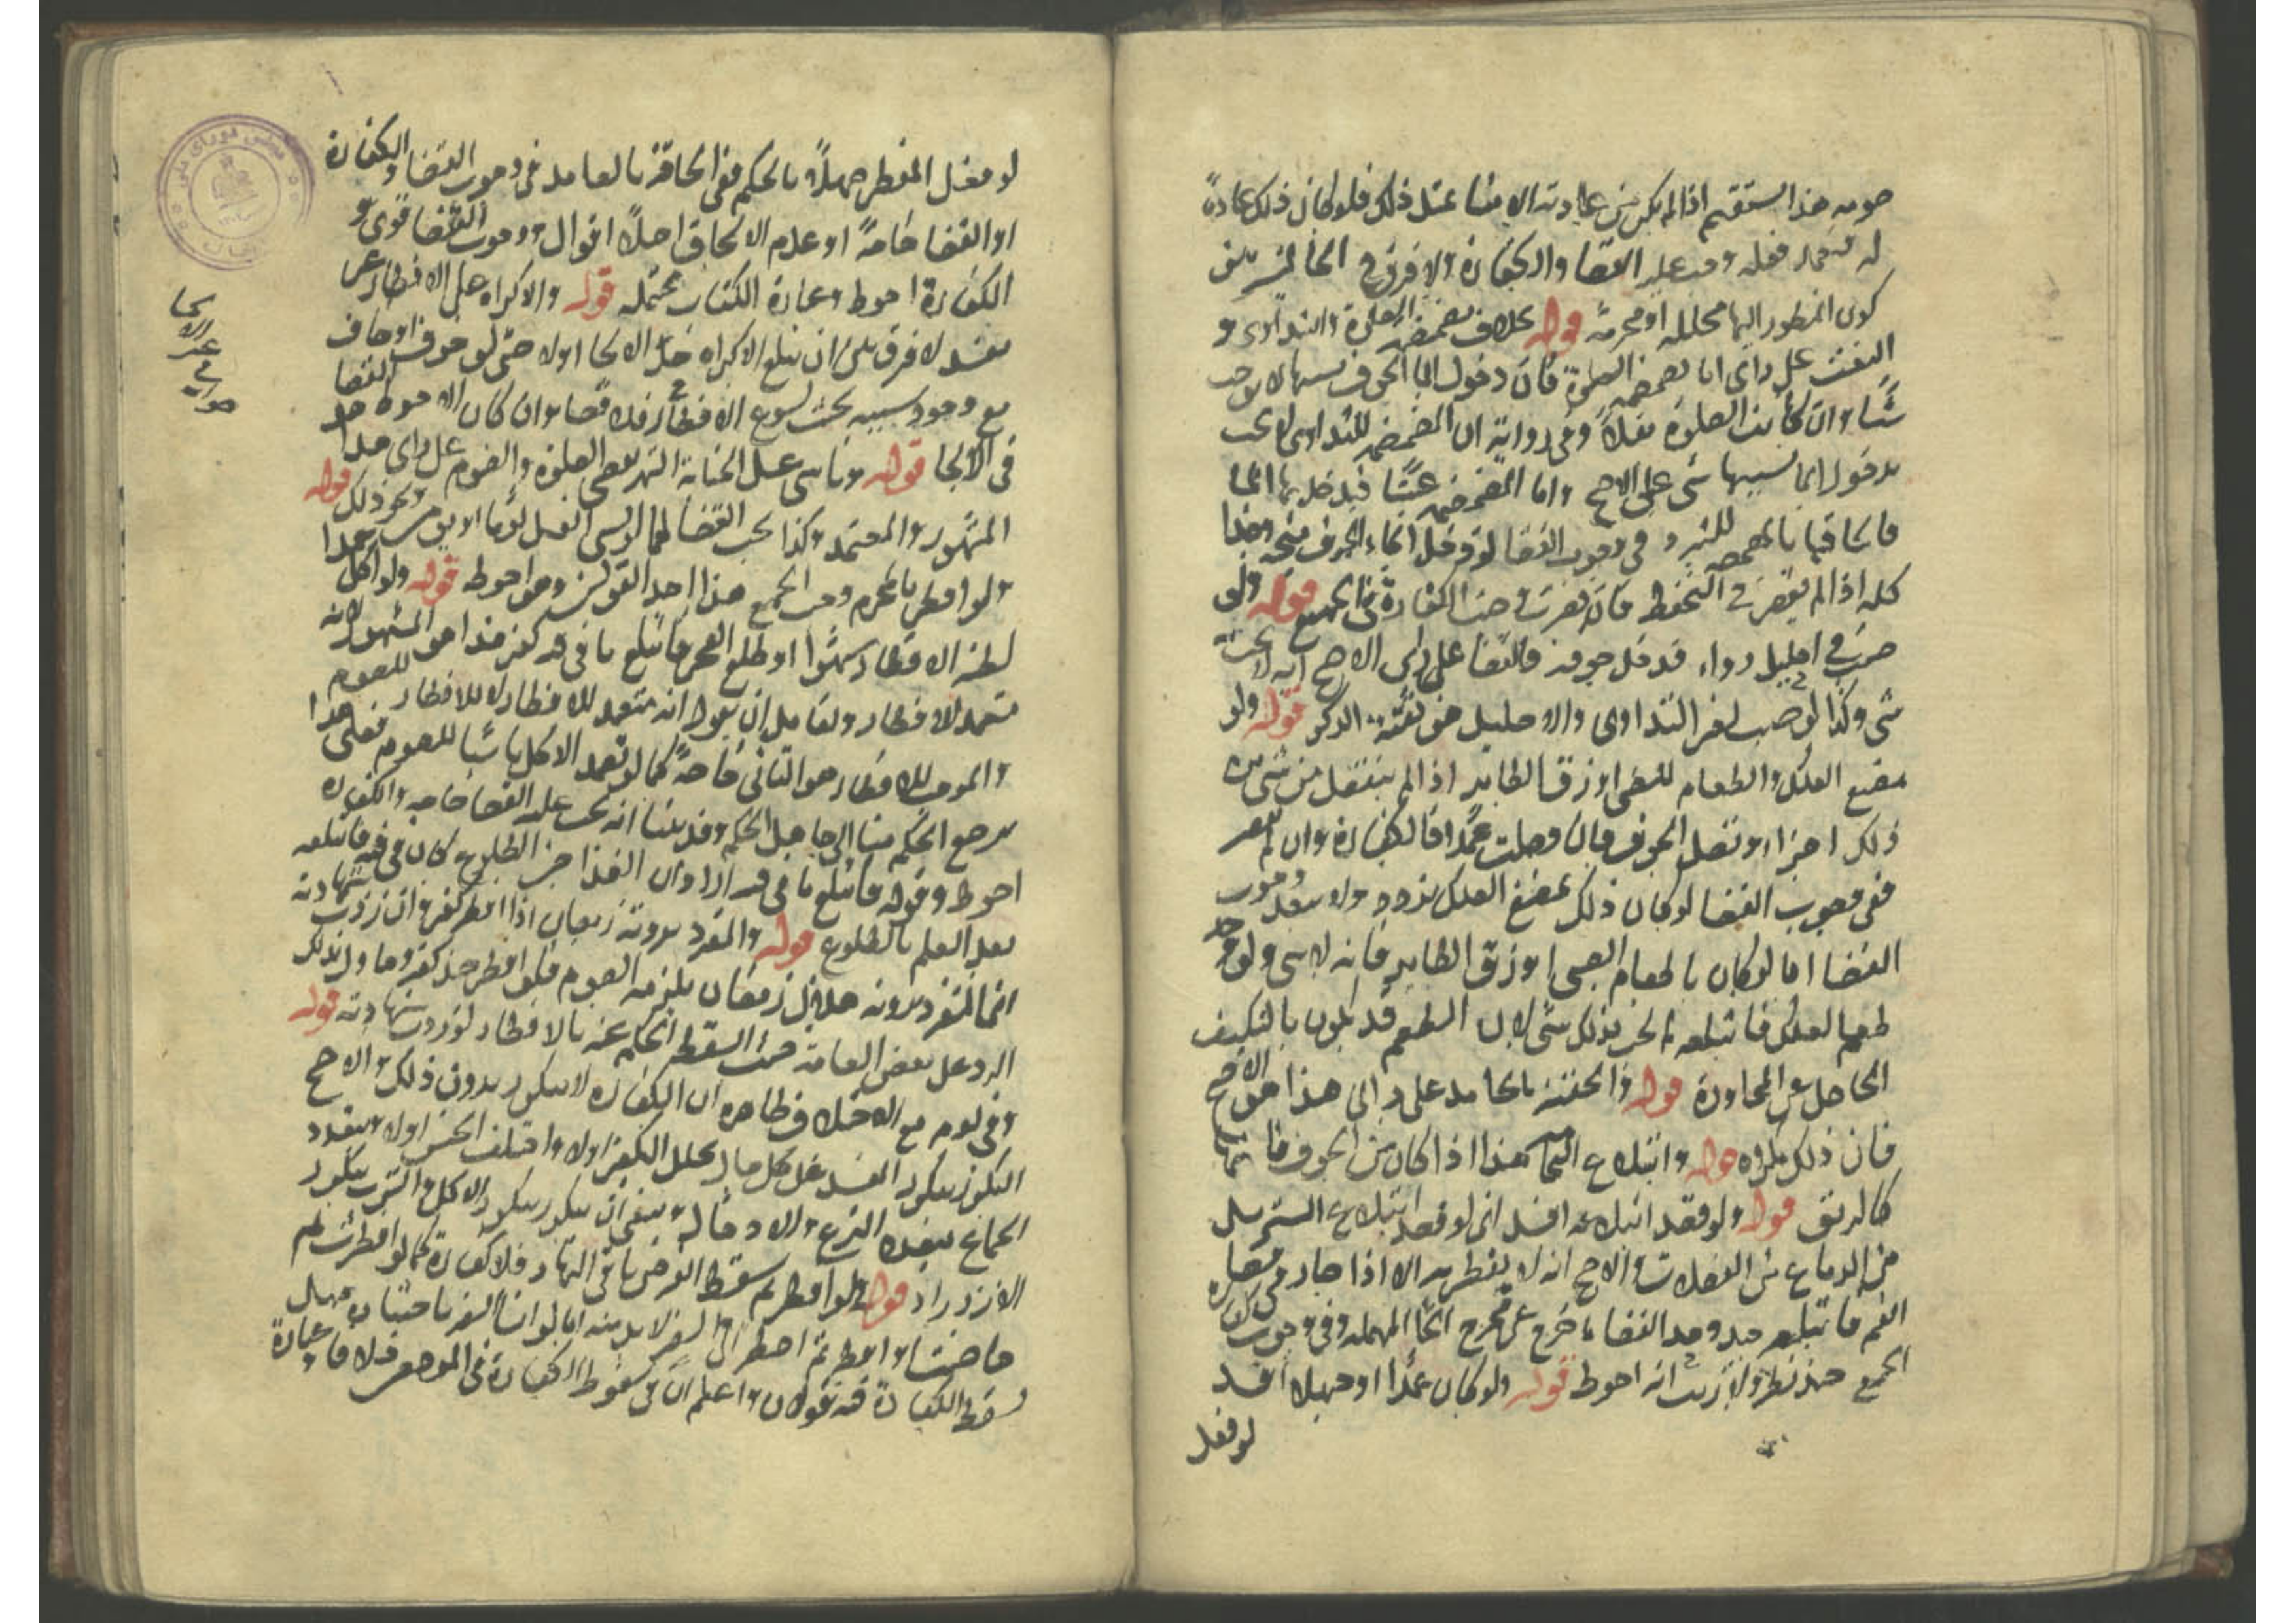 صومه هذا يستقيم اذا لم يكن من عادته الامناء عند ذلك فلو كان ذلك عادة
له فتعمد فعله وجب عليه القضا والكفارة ولا فرق في الحالتين بين
كون المنظور اليها محللة او محرمة قوله بخلاف مضمضة الصلوة والتداوي و
العبث على راي اما مضمضة الصلوة فان دخول الماء الجوف بسببها لا يوجب
شيئا وان كانت الصلوة نفلا وفي رواية ان المضمضة للتداوي لا يجب
بدخول الماء بسببها شي على الاصح واما المضمضة عبثا فيدخل بها الماء
فالحاقها بالمضمضة للتبرد في وجوب القضا لو دخل الماء الجوف متجه وهذا
كله اذا لم يقصر في التحفظ فان قصر وجبت الكفارة في الجميع قوله ولو
صب في احليله دواء فدخل جوفه فالقضا على راي الاصح انه لا يجب به
شي وكذا لو صب لغير التداوي والاحليل هو ثقبة الذكر قوله ولو
مضغ العلك والطعام للصبي او زق الطاير اذا لم ينفصل من شي من
ذلك اجزاء وتصل الجوف فان وصلت عمدا فالكفارة وان لم يقصر
ففي وجوب القضا لو كان ذلك بمضغ العلك تردد ولا يبعد وجوب
القضا اما لو كان بالطعام الصبي او زق الطاير فانه لا شي ولو وجد
طعم العلك فابتلعه لم يجب بذلك شي لان الطعم قد يكون بالتكيف
الحاصل من المجاورة قوله والحقنة بالجامد على راي هذا هو الاصح
فان ذلك مكروه قوله وابتلاع النخامة هذا اذا كان من الجوف فانها
كالريق قوله ولو قصد ابتلاعه افسد اي لو قصد ابتلاع المسترسل
من الدماغ من الفضلات والاصح انه لا يفطر به الا اذا صار في فضاء
الفم فابتلعه حينئذ وحد الفضاء مخرج الحاء المهملة وفي وجوب كفارة
الجمع حينئذ نظر ولا ريب انه احوط قوله ولو كان عمدا او جهلا افسد
لو فعل
لو فعل المفطر جهلا بالحكم ففي الحاقه بالعامد في وجوب القضا والكفارة
او القضا خاصة او عدم الالحاق اصلا اقوال ووجوب القضا قوي و
الكفارة احوط وعبارة الكتاب محتملة قوله والاكراه على الافطار غير
مفسد لا فرق بين ان يبلغ الاكراه حد الالجاء اولا حتى لو خوف او خاف
مع وجود سببه بحيث يسوغ الافطار فلا قضا وان كان الاحوط القضا
في الالجا قوله وناسي غسل الجنابة الشهر يقضي الصلوة والصوم على راي هذا
المشهور والمعتمد وكذا يجب القضا لما لو نسي الغسل يوما او يومين ونحو ذلك قوله
ولو افطر بالمحرم وجب الجميع هذا احد القولين وهو احوط قوله ولو اكل عمدا
لظنه الافطار سهوا او طلع الفجر فابتلع ما في فيه كفر هذا هو المشهور لانه
متعمد للافطار ولقايل ان يقول انه متعمد للافطار لا للافطار للصوم
والموجب للافطار هو الثاني خاصة كما لو تعمد الاكل ناسيا للصوم فعلى هذا
يرجع الحكم هنا الى جاهل الحكم وقد بينا انه يجب عليه القضا خاصة والكفارة
احوط وقوله فابتلع ما في فيه اراد ان الغذا حين الطلوع كان في فيه فابتلعه
بعد العلم بالطلوع قوله والمنفرد برؤية رمضان اذا افطر كفر وان ردت شهادته
انما المنفرد برؤية هلال رمضان يلزمه الصوم فلو افطر حينئذ كفر وحاول بذلك
الرد على بعض العامة حيث اسقط الحكم عنه بالافطار لو ردت شهادته قوله
وفي يوم مع الاختلاف ظاهره ان الكفارة لا تتكرر بدون ذلك والاصح
التكرر بتكرر المفسد على كل حال تخلل التكفير اولا واختلف الجنس اولا ويتعدد
الجماع بتعدد النزع والادخال وينبغي ان يتكرر بتكرر الاكل والشرب بتكرر
الازدراد قوله ولو افطر ثم سقط الفرض باقي النهار فلا كفارة كما لو افطرت ثم
حاضت او افطر ثم اضطر الى السفر لا بد منه اما لو انشأ السفر باختياره فهل
تسقط الكفارة فيه قولان واعلم ان في سقوط الكفارة في الموضعين خلافا وعبارة
الالجا